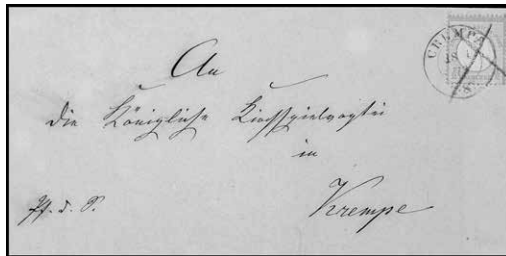 CREMPE
An
die Königliche Kirchspielvogtei
in
Krempe